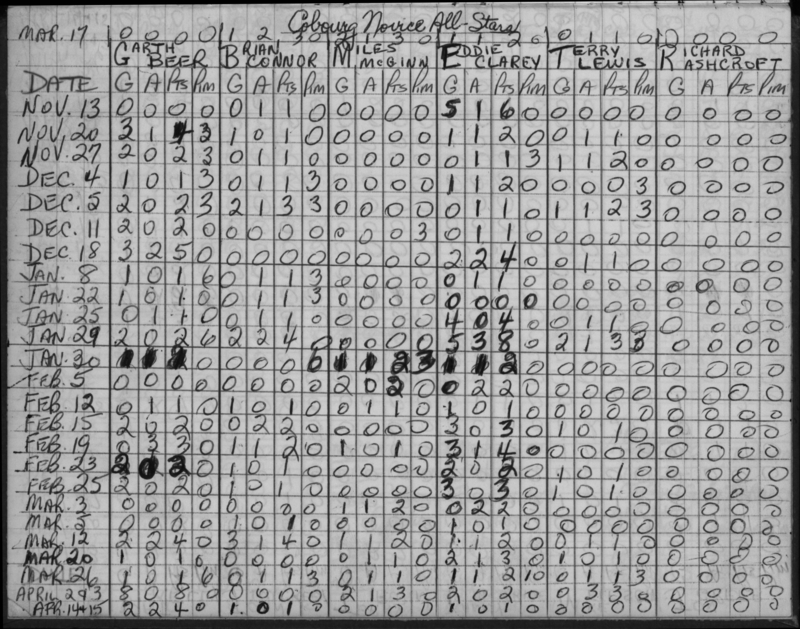 Cobourg Novice All-Stars
MAR. 17 0 0 0 0 1 2 3 0 1 1 2 0 0 1 1 0 0 0 0 0
GARTH BEER BRIAN CONNOR MILES McGINN EDDIE CLAREY TERRY LEWIS RICHARD ASHCROFT
DATE G A Pts Pim G A Pts Pim G A Pts Pim G A Pts Pim G A Pts Pim G A Pts Pim
NOV. 13 0 0 0 0 0 1 1 0 0 0 0 0 5 1 6 0 0 0 0 0 0 0 0
NOV. 20 3 1 4 3 1 0 1 0 0 0 0 0 1 1 2 0 0 1 1 0 0 0 0 0
NOV. 27 2 0 2 3 0 1 1 0 0 0 0 0 0 1 1 3 1 1 2 0 0 0 0 0
DEC. 4 1 0 1 3 0 1 1 3 0 0 0 0 1 1 2 0 0 0 0 3 0 0 0 0
DEC. 5 2 0 2 3 2 1 3 3 0 0 0 0 0 1 1 0 1 1 2 3 0 0 0 0
DEC. 11 2 0 2 0 0 0 0 0 0 0 0 3 0 1 1 0 0 0 0 0 0 0 0
DEC. 18 3 2 5 0 0 0 0 0 0 0 0 0 2 2 4 0 0 1 1 0 0 0 0 0
JAN. 8 1 0 1 6 0 1 1 3 0 0 0 0 0 1 1 0 0 0 0
JAN. 22 1 0 1 0 0 1 1 3 0 0 0 0 0 0 0 0 0 0 0 0
JAN. 25 0 1 1 0 0 1 1 0 0 0 0 0 4 0 4 0 0 1 1 0 0 0 0 0
JAN. 29 2 0 2 6 2 2 4 0 0 0 0 0 5 3 8 0 2 1 3 3 0 0 0 0
JAN. 30 1 1 2 0 0 0 0 6 1 1 2 3 1 1 2 0 0 0 0
FEB. 5 0 0 0 0 0 0 0 0 2 0 2 0 0 2 2 0 0 0 0 0 0 0 0 0
FEB. 12 0 1 1 0 1 0 1 0 0 1 1 0 1 0 1 0 0 0 0
FEB. 15 2 0 2 0 0 2 2 0 0 0 0 0 3 0 3 0 1 0 1 0 0 0 0 0
FEB. 19 0 3 3 0 1 1 2 0 1 0 1 0 3 1 4 0 0 0 0 0 0 0 0 0
FEB. 23 2 0 2 0 1 0 1 0 0 0 0 0 2 0 2 0 1 0 1 0 0 0 0
FEB. 25 2 0 2 0 1 0 1 0 0 0 0 0 3 0 3 0 1 0 1 0 0 0 0 0
MAR. 3 0 0 0 0 0 0 0 0 1 1 2 0 0 2 2 0 0 0 0 0 0 0 0 0
MAR. 5 0 0 0 0 1 0 1 0 0 0 0 0 1 0 1 0 0 0 0 0 0 0 0 0
MAR. 12 2 2 4 0 3 1 4 0 1 1 2 0 1 1 2 0 0 1 1 0 0 0 0 0
MAR. 20 1 0 1 0 0 0 0 0 0 1 1 0 2 1 3 0 1 0 1 0 0 0 0 0
MAR. 26 1 0 1 6 0 1 1 3 0 1 1 0 1 1 2 10 0 1 1 3 0 0 0 0
APRIL 2+3 8 0 8 0 0 0 0 0 2 1 3 0 2 0 2 0 0 3 3 0 0 0 0 0
APR. 14+15 2 2 4 0 1 0 1 0 0 0 0 0 1 0 1 0 0 0 0 0 0 0 0 0